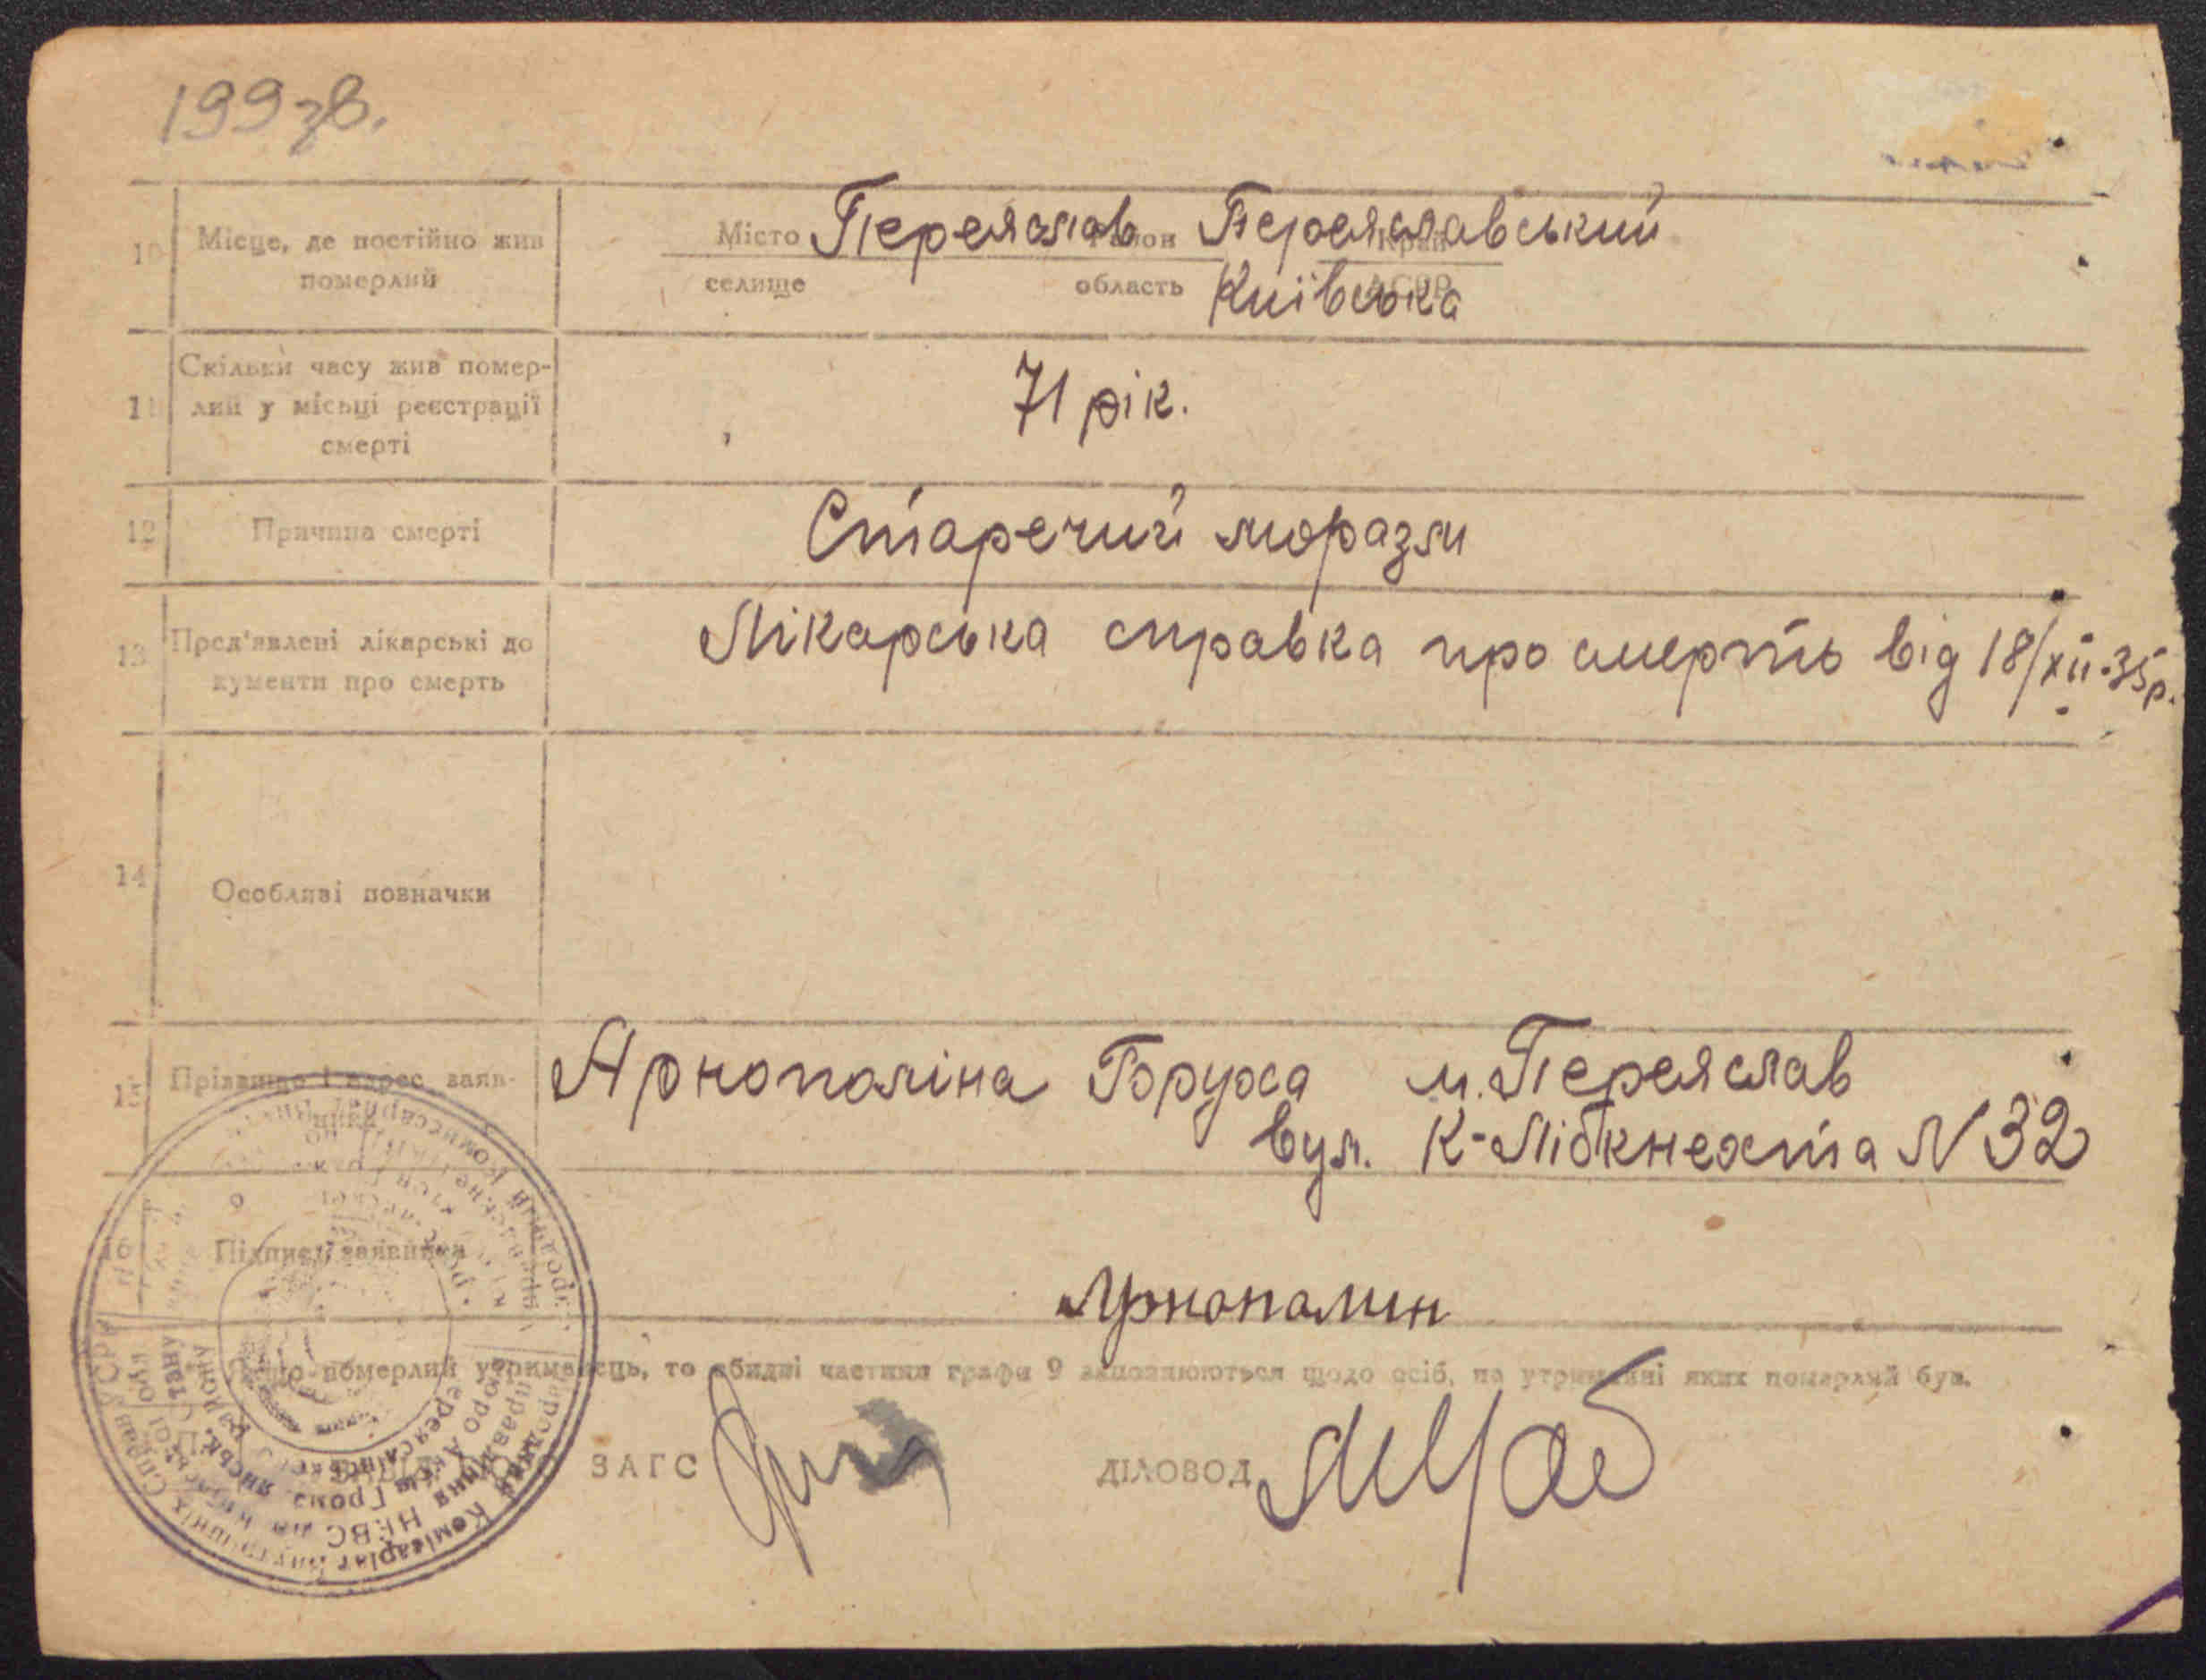 199 зв.
10 Місце, де постійно жив померлий
Місто Переяслав район Переяславський Край
селище область Київська АСРР
11 Скільки часу жив помер-
лий у місьці реєстрації
смерті
71 рік.
12 Причина смерті Старечий моразм
13 Пред'явлені лікарські до
кументи про смерть
Лікарська справка про смерть від 18/XII-35р.
14 Особливі позначки
15 Прізвище і адрес заяв-
ника
Арнополіна Боруха м. Переяслав
вул. К-Лібкнехта N 32
16 Підпис заявника
Арнополин
померлий утриманець, то обидві частини графи 9 заповнюються щодо осіб, на утриманні яких померлий був.
ЗАГС ДІЛОВОД